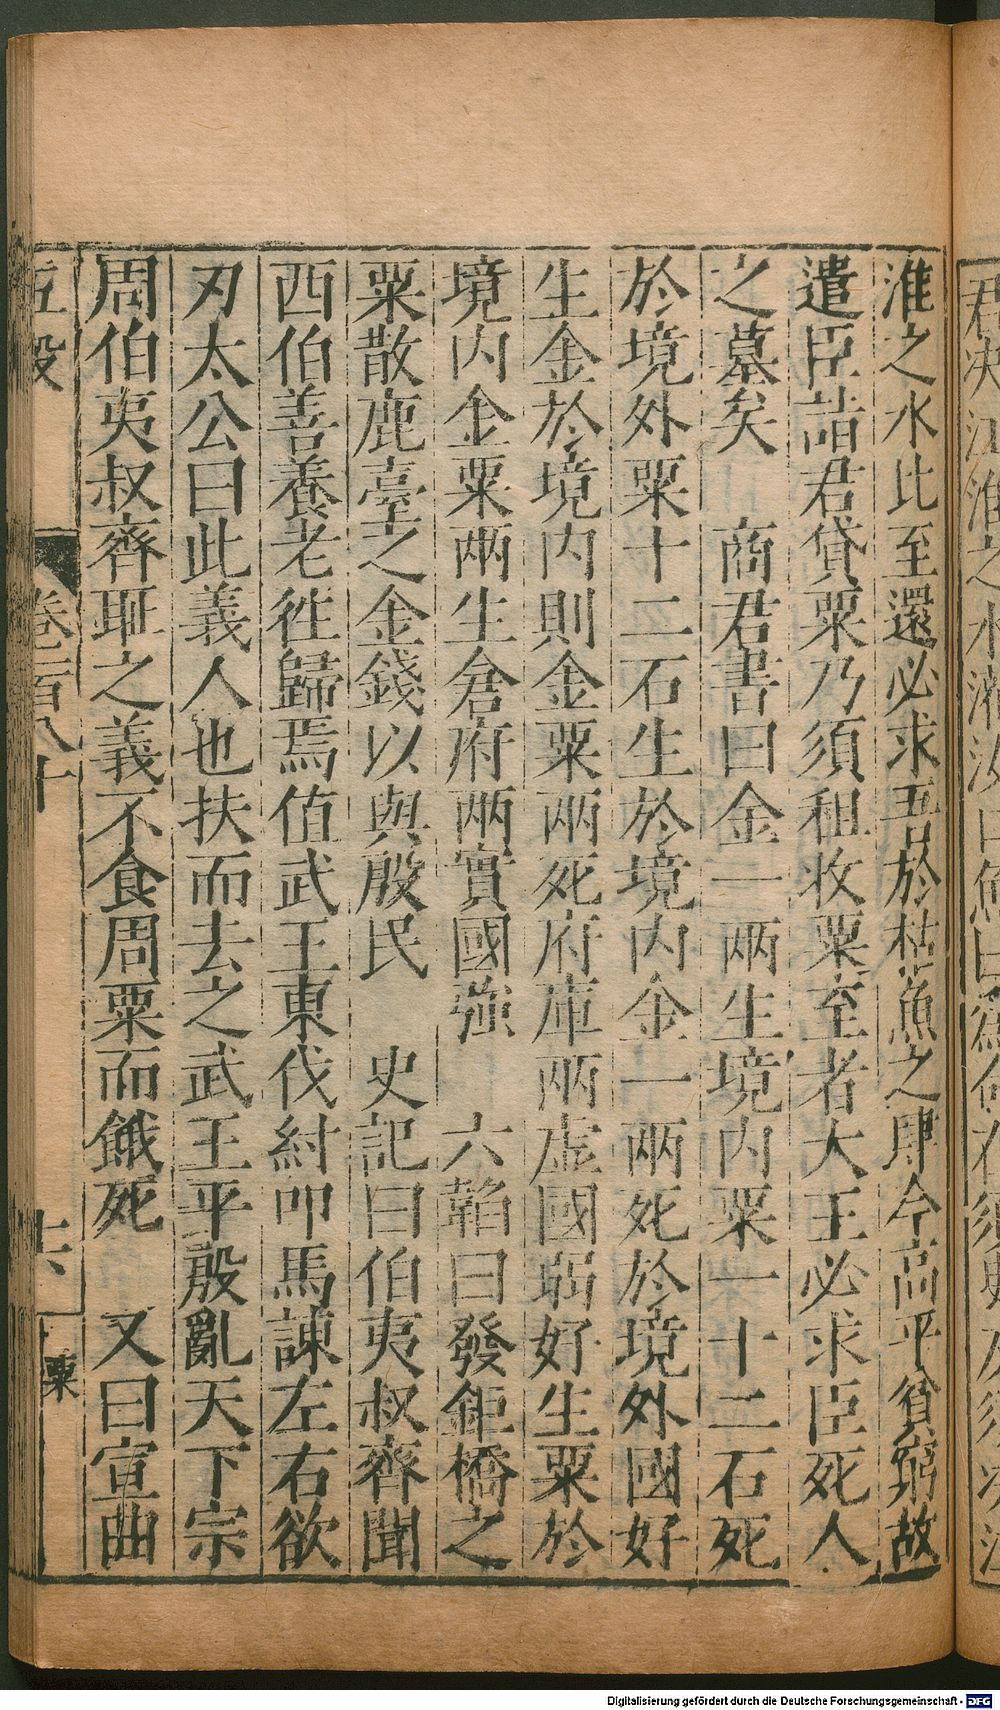 淮之水比至還必求吾於枯魚之肆今高平貧窮故
遣臣詣君貸粟乃須租收粟至者大王必求臣死人
之墓矣　商君書曰金一兩生境內粟一十二石死
於境外粟十二石生於境內金一兩死於境外國好
生金於境內則金粟兩死府庫兩虛國弱好生粟於
境內金粟兩生倉府兩實國強　六韜曰發鉅橋之
粟散鹿臺之金錢以與殷民　史記曰伯夷叔齊聞
西伯善養老徃歸焉值武王東伐紂叩馬諫左右欲
刃太公曰此義人也扶而去之武王平殷亂天下宗
周伯夷叔齊耻之義不食周粟而餓死　又曰宣曲
卷二百八十
十六
粟
Digitalisierung gefördert durch die Deutsche Forschungsgemeinschaft - DFG